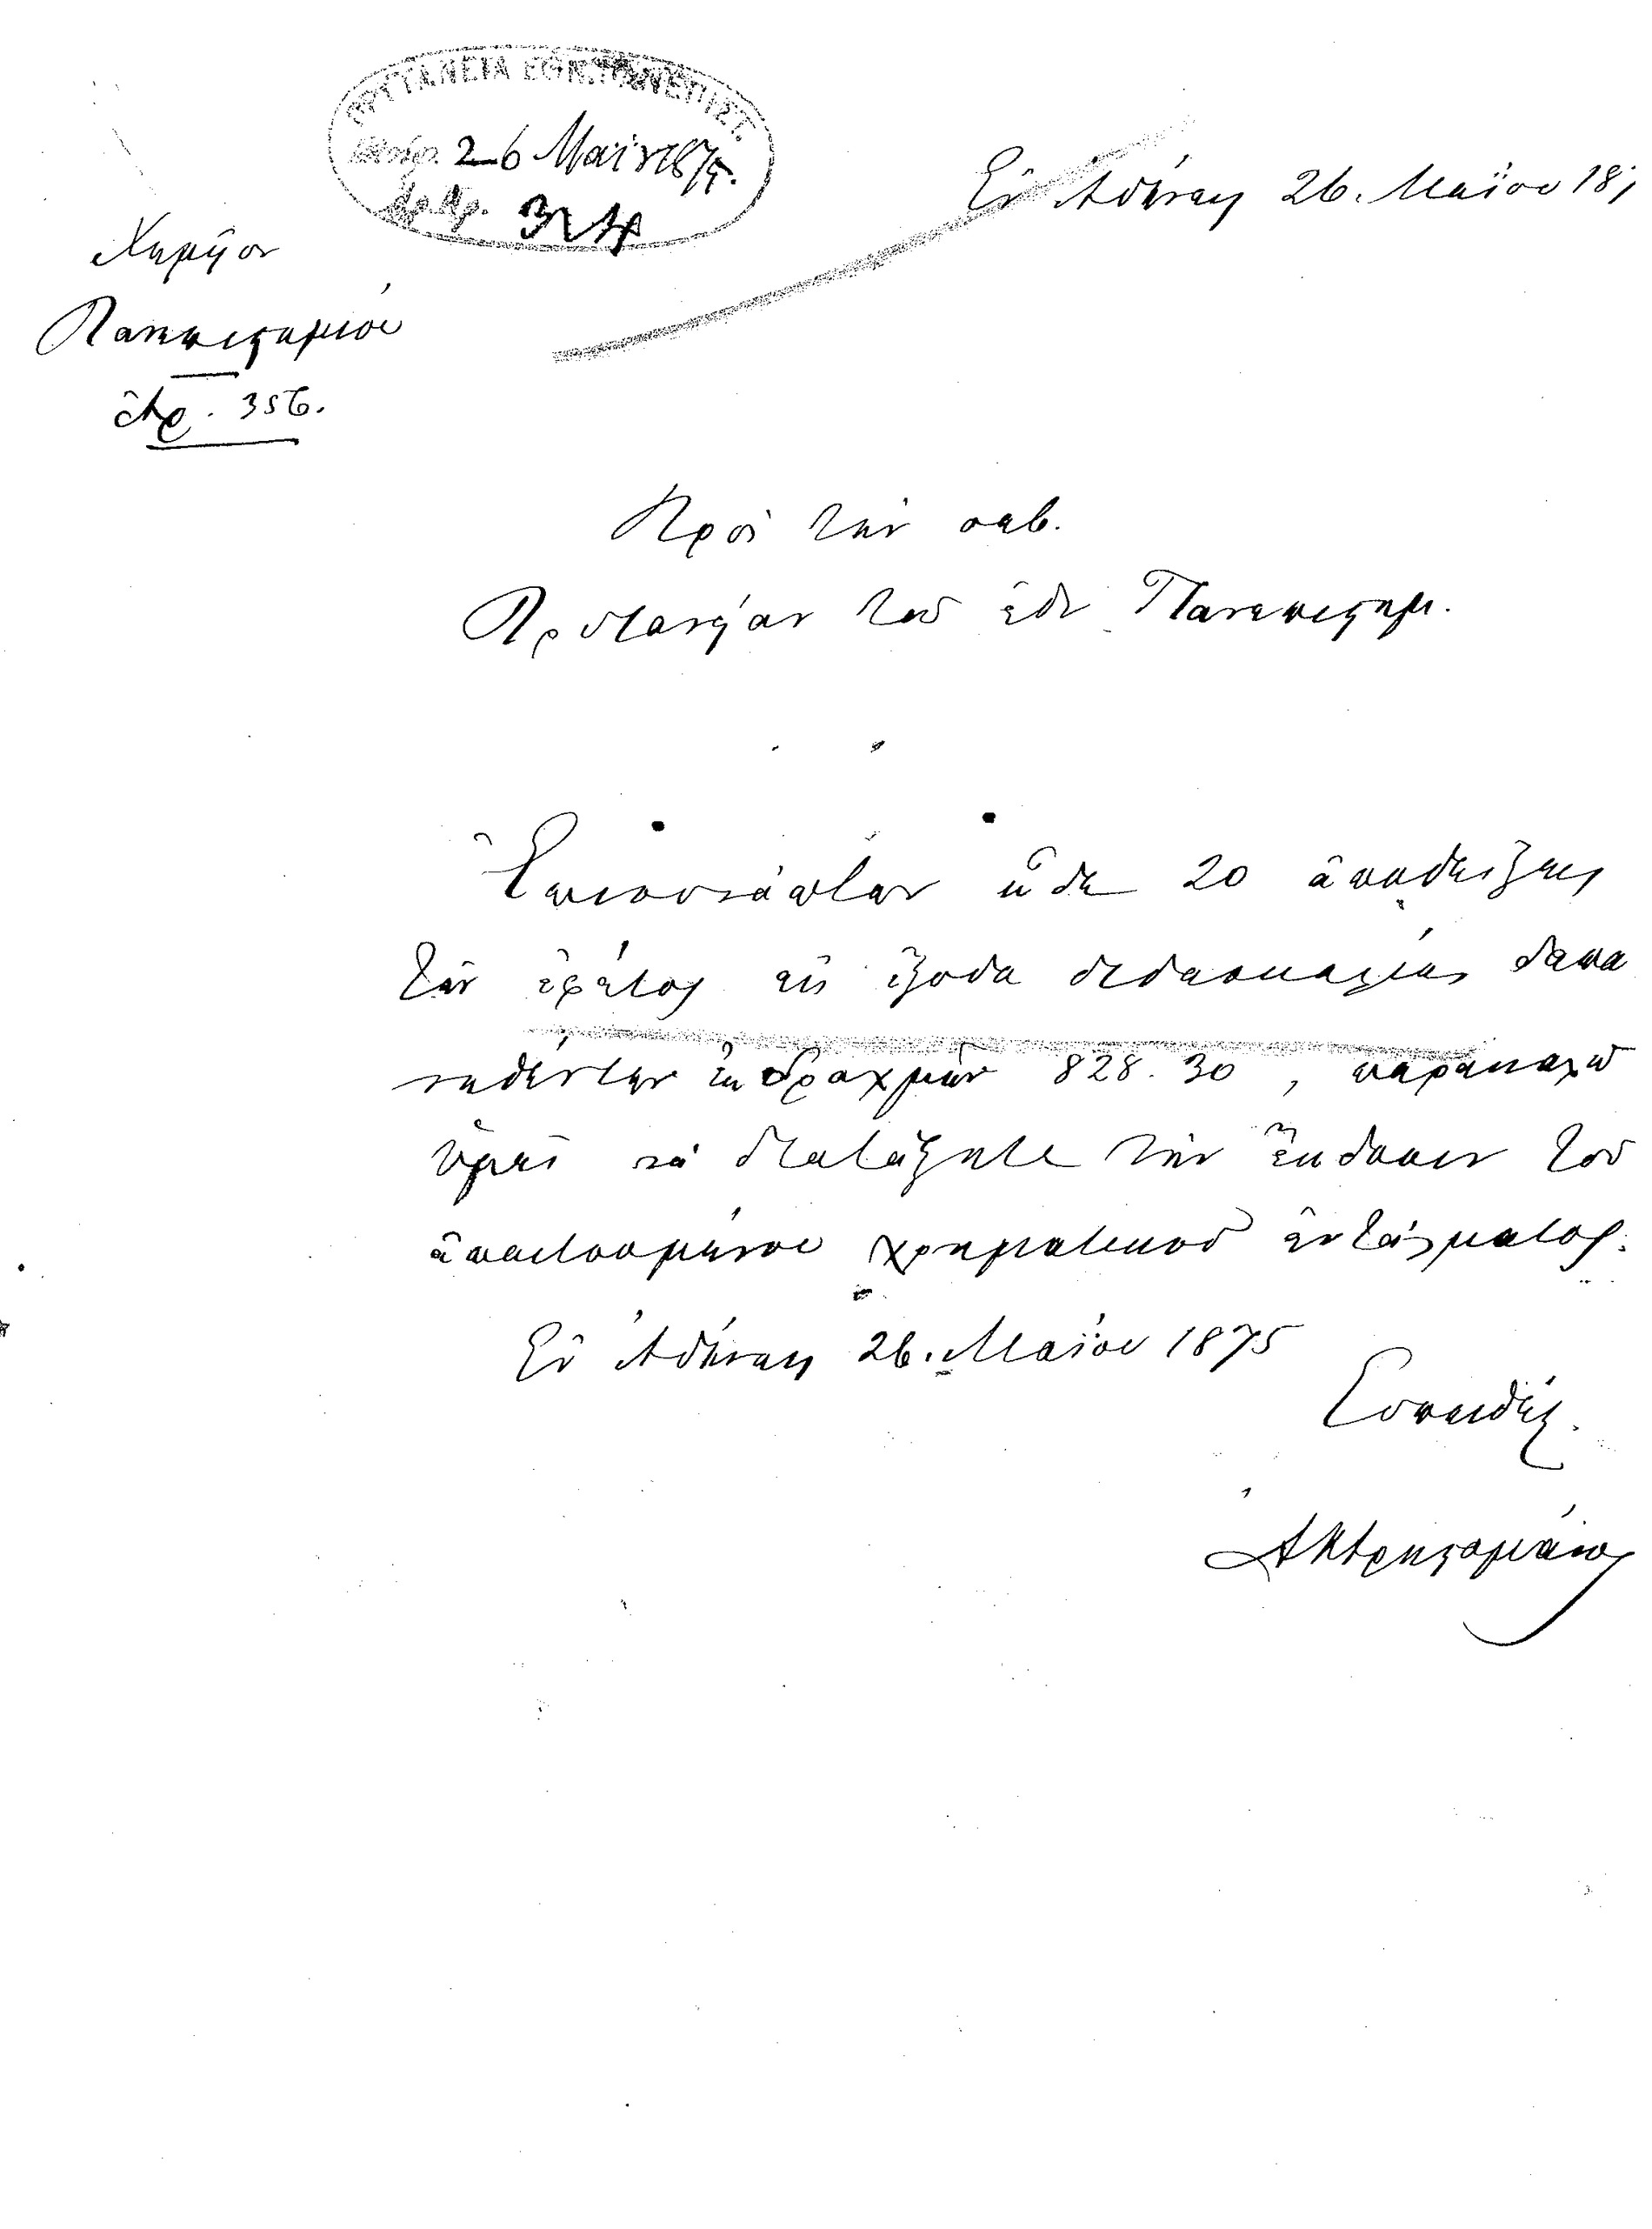 ΠΡΥΤΑΝΕΙΑ ΕΘΝ. ΠΑΝΕΠΙΣΤ.
26 Μαΐου 1875.
Ἀρ. Πρ. 324
Ἐν Ἀθήναις 26. Μαΐου 187
Χημεῖον
Πανεπιστημίου
Ἀρ. 356.
Πρὸς τὴν σεβ.
Πρυτανείαν τοῦ ἐθν Πανεπιστημ.
Ἐπισυνάπτων ὧδε 20 ἀποδείξεις
τῶν ἐφέτος εἰς ἔξοδα διδασκαλίας δαπα
νηθέντων ἐκ δραχμῶν 828.30, παρακαλῶ
ὑμᾶς νὰ διατάξητε τὴν ἔκδοσιν τοῦ
ἀπαιτουμένου χρηματικοῦ ἐντάλματος.
Ἐν Ἀθήναις 26. Μαΐου 1875
Εὐπειθής.
ΑΚΧρηστομάνος